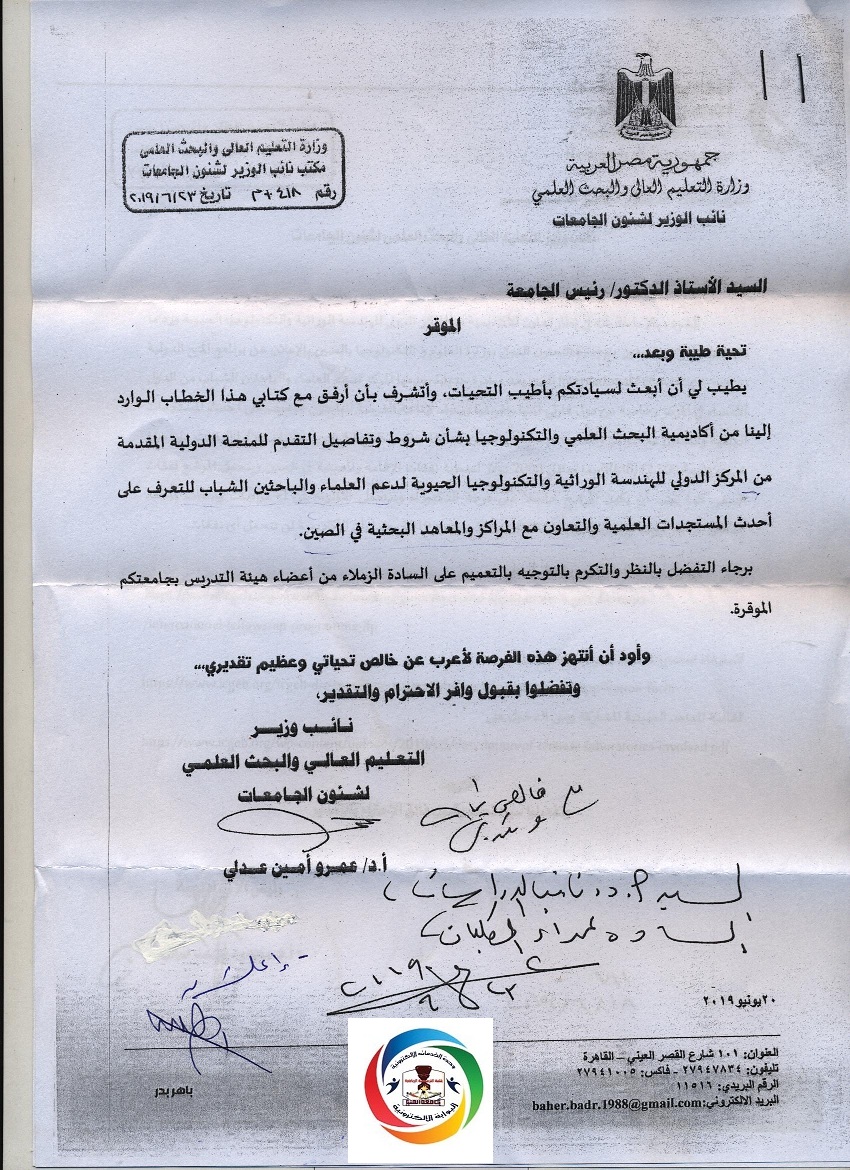 جمهورية مصر العربية
وزارة التعليم العالي والبحث العلمي
نائب الوزير لشئون الجامعات
وزارة التعليم العالى والبحث العلمى
مكتب نائب الوزير لشئون الجامعات
رقم ٤١٨ + م تاريخ ٢٠١٩/٦/٢٣
السيد الأستاذ الدكتور/ رئيس الجامعة
الموقر
تحية طيبة وبعد،،،
يطيب لي أن أبعث لسيادتكم بأطيب التحيات، وأتشرف بأن أرفق مع كتابي هذا الخطاب الوارد
إلينا من أكاديمية البحث العلمي والتكنولوجيا بشأن شروط وتفاصيل التقدم للمنحة الدولية المقدمة
من المركز الدولي للهندسة الوراثية والتكنولوجيا الحيوية لدعم العلماء والباحثين الشباب للتعرف على
أحدث المستجدات العلمية والتعاون مع المراكز والمعاهد البحثية في الصين.
برجاء التفضل بالنظر والتكرم بالتوجيه بالتعميم على السادة الزملاء من أعضاء هيئة التدريس بجامعتكم
الموقرة.
وأود أن أنتهز هذه الفرصة لأعرب عن خالص تحياتي وعظيم تقديري،،،
وتفضلوا بقبول وافر الاحترام والتقدير،
نائب وزير
التعليم العالي والبحث العلمي
لشئون الجامعات
أ.د/ عمرو أمين عدلي
مع خالص
السيد أ.د. نائب الدراسات
السادة عمداء الكليات
٢٠ يونيو ٢٠١٩
العنوان: ١٠١ شارع القصر العيني – القاهرة
تليفون: ٢٧٩٤٧٨٣٤ - فاكس: ٢٧٩٤١٠٠٥
الرقم البريدي: ١١٥١٦
البريد الالكتروني:baher.badr.1988@gmail.com
باهر بدر
وحدة الخدمات الإلكترونية
البوابة الالكترونية